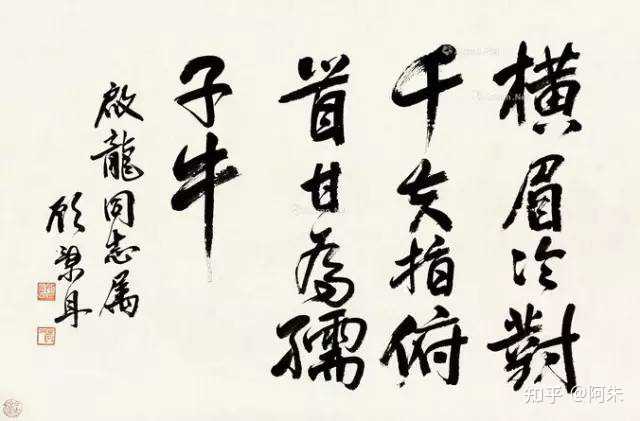 橫眉冷對
千夫指俯
首甘為孺
子牛
啟龍同志属
知乎 @阿朱